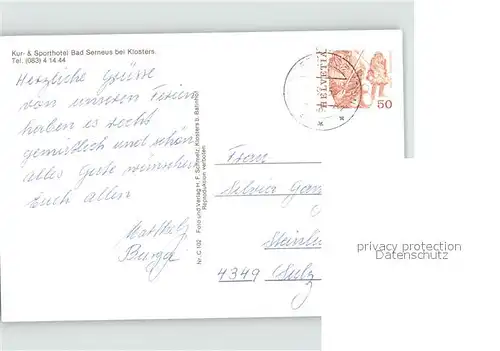 Kur- & Sporthotel Bad Serneus bei Klosters.
Tel. (083) 4 14 44
Herzliche Grüsse
von unseren Ferien
haben es recht
gemütlich und schön
alles Gute wünschen
Euch allen
Burga
Nr. C 102 Foto und Verlag H. F. Schmelz, Klosters b. Bahnhof
Reproduktion verboten
HELVETIA
50
Frau
Silvia
4349 Sulz
privacy protection
Datenschutz